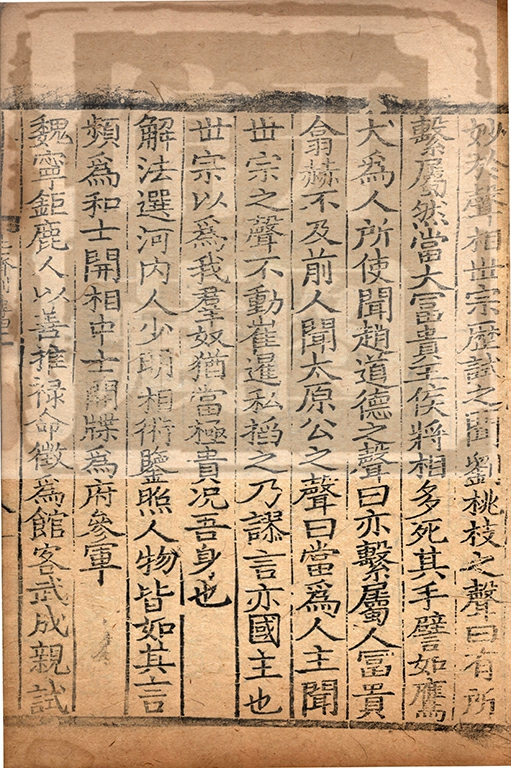 妙於聲相世宗歷試之聞劉桃枝之聲曰有所
繫屬然當大富貴王侯將相多死其手譬如鷹
犬爲人所使聞趙道德之聲曰亦繫屬人富貴
翕赫不及前人聞太原公之聲曰當爲人主聞
世宗之聲不動崔暹私搯之乃謬言亦國主也
世宗以爲我羣奴猶當極貴况吾身也
解法選河内人少明相術鑒照人物皆如其言
頻爲和士開相中士開牒爲府參軍
魏寧鉅鹿人以善推禄命徵爲館客武成親試